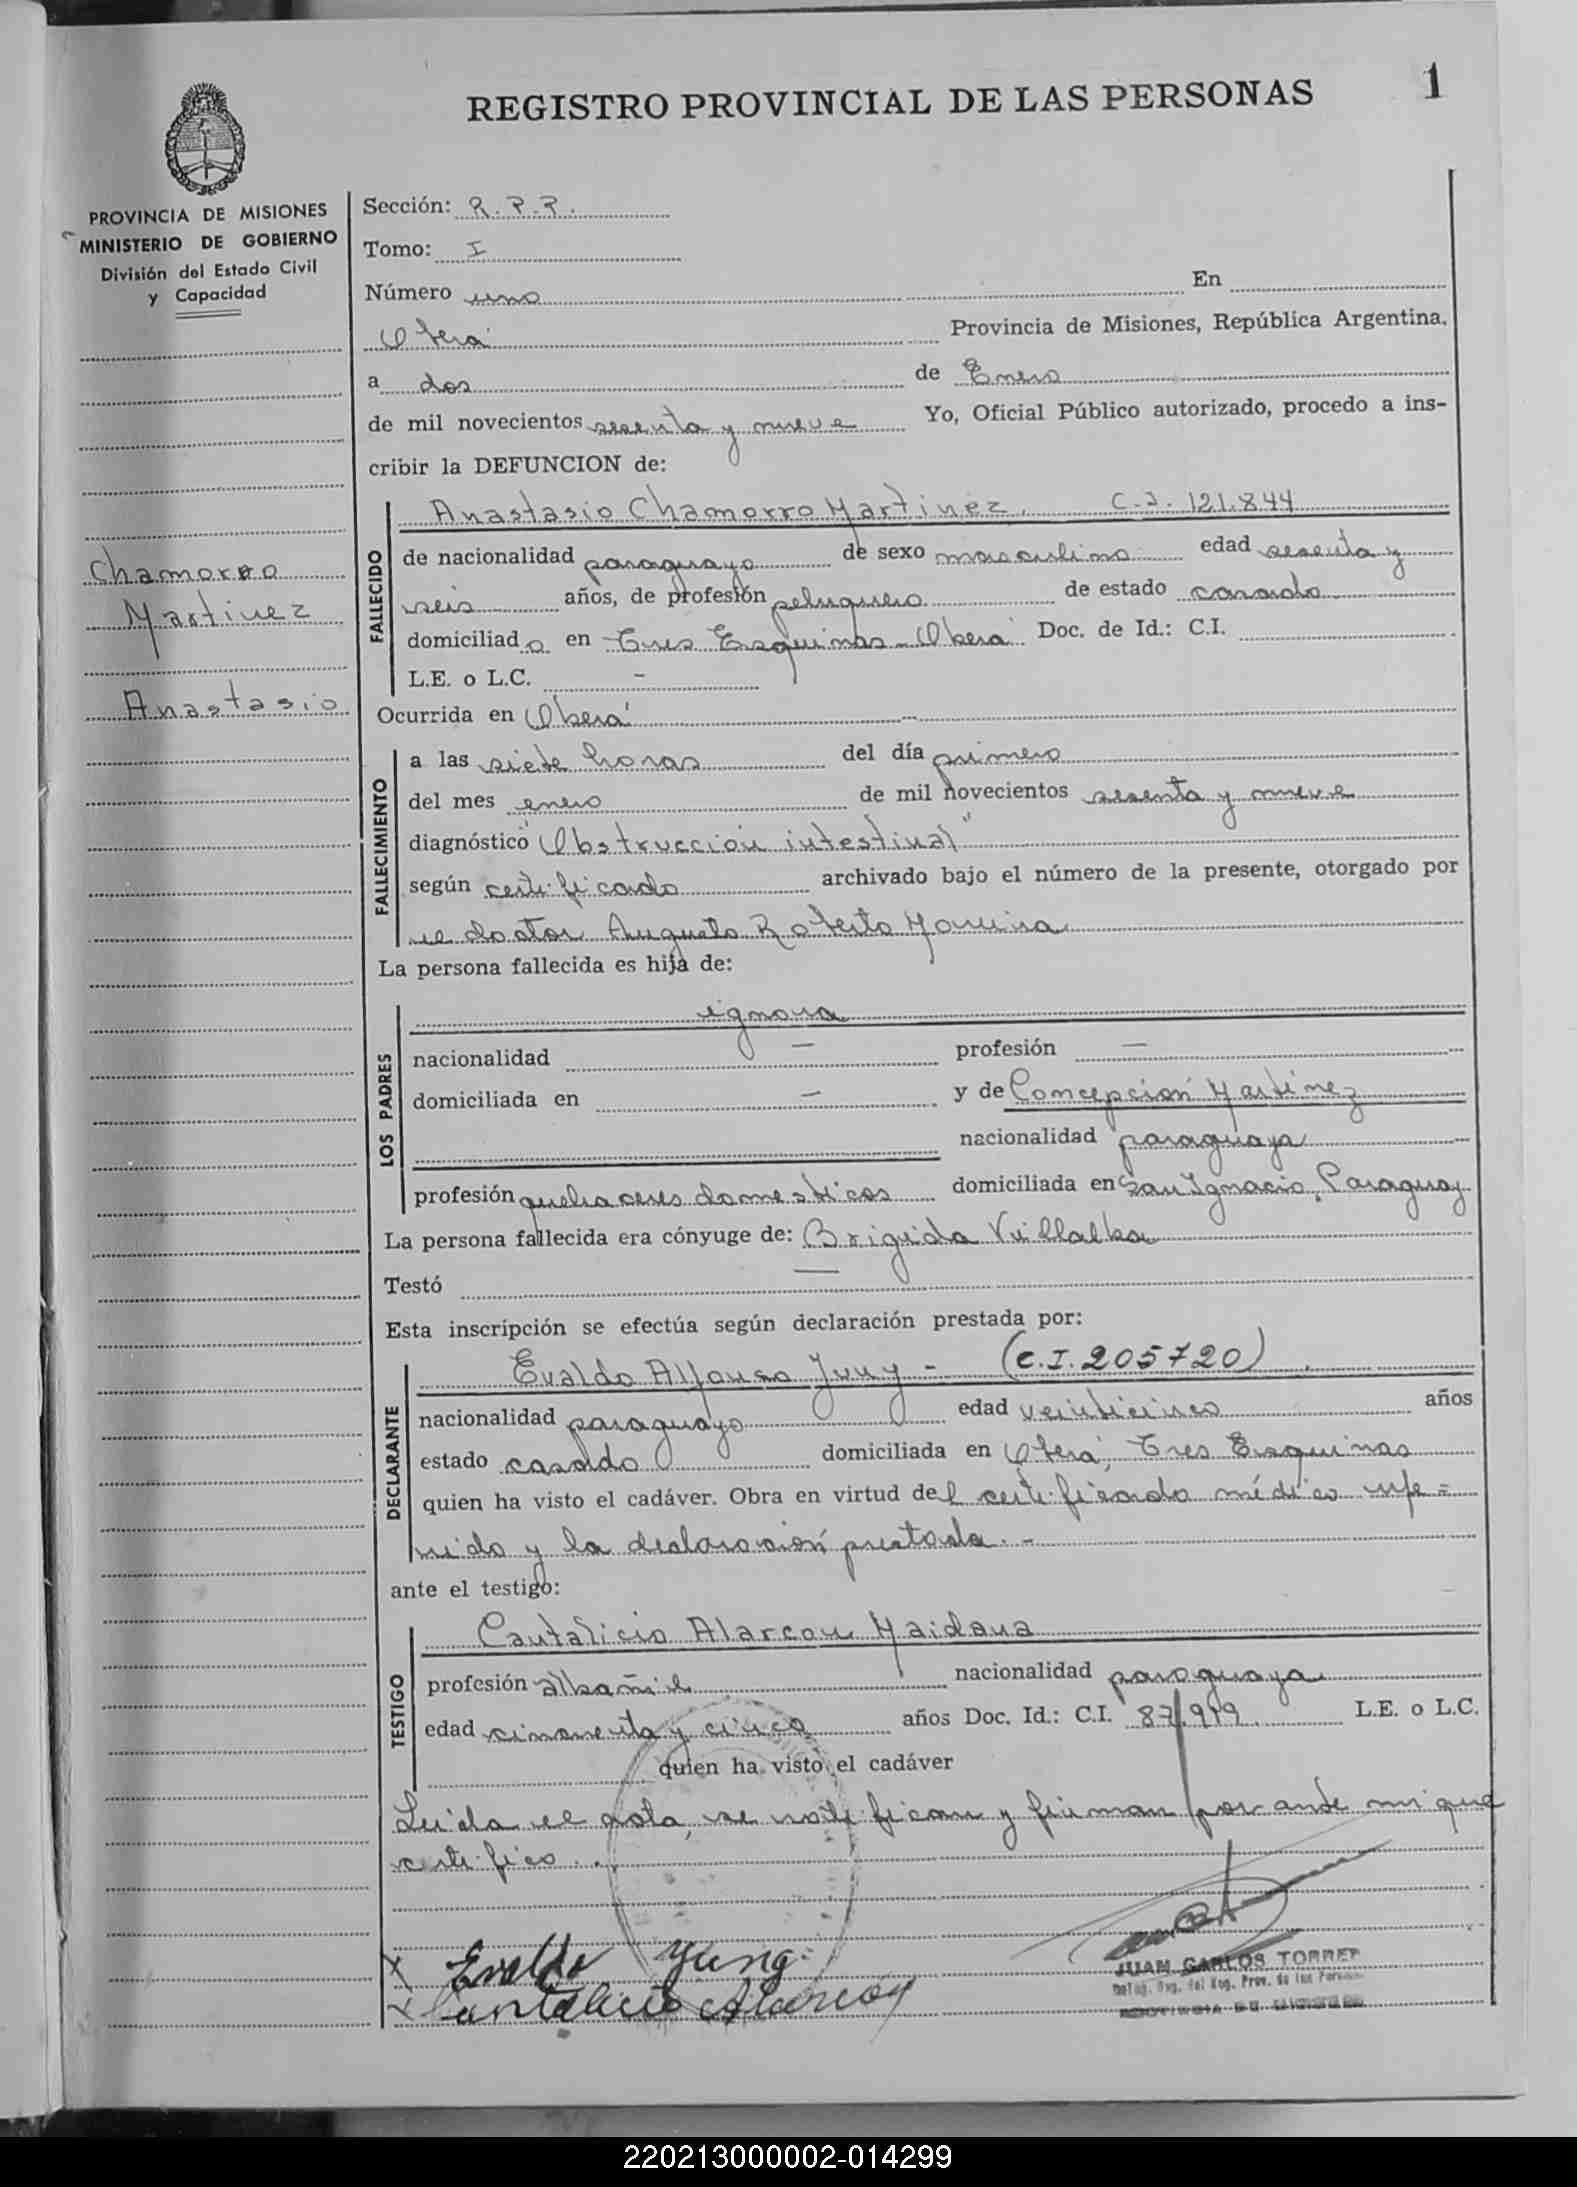 REGISTRO PROVINCIAL DE LAS PERSONAS
1
PROVINCIA DE MISIONES
MINISTERIO DE GOBIERNO
División del Estado Civil
y Capacidad
Chamorro
Martinez
Anastasio
Sección: R.P.P.
Tomo: I
Número uno En
Oberá Provincia de Misiones, República Argentina,
a dos de Enero
de mil novecientos sesenta y nueve Yo, Oficial Público autorizado, procedo a ins-
cribir la DEFUNCION de:
FALLECIDO
Anastasio Chamorro Martinez. C.I. 121.844
de nacionalidad paraguayo de sexo masculino edad sesenta y
seis años, de profesión peluquero de estado casado
domiciliado en Tres Esquinas - Oberá Doc. de Id.: C.I.
L.E. o L.C. -
Ocurrida en Oberá
FALLECIMIENTO
a las siete horas del día primero
del mes enero de mil novecientos sesenta y nueve
diagnóstico "Obstrucción intestinal"
según certificado archivado bajo el número de la presente, otorgado por
el doctor Augusto Roberto
La persona fallecida es hija de:
LOS PADRES
ignora
nacionalidad — profesión —
domiciliada en — y de Concepción Martinez
nacionalidad paraguaya
profesión quehaceres domesticos domiciliada en San Ignacio, Paraguay
La persona fallecida era cónyuge de: Brigida Villalba
Testó —
Esta inscripción se efectúa según declaración prestada por:
DECLARANTE
Evaldo Alfonso Juny - (C.I. 205720)
nacionalidad paraguayo edad veinticinco años
estado casado domiciliada en Oberá, Tres Esquinas
quien ha visto el cadáver. Obra en virtud del certificado médico refe=
rido y la declaración prestada. -
ante el testigo:
TESTIGO
Cantalicio Alarcon Maidana
profesión albañil nacionalidad paraguaya
edad cincuenta y cinco años Doc. Id.: C.I. 87.919 L.E. o L.C.
quien ha visto el cadáver
Leida el acta, se notifican y firman por ante mi que
certifico.
x Evaldo Yung
x Cantalicio Alarcón
JUAN CARLOS TORRES
Deleg. Reg. del Reg. Prov. de las Personas
PROVINCIA DE MISIONES
220213000002-014299